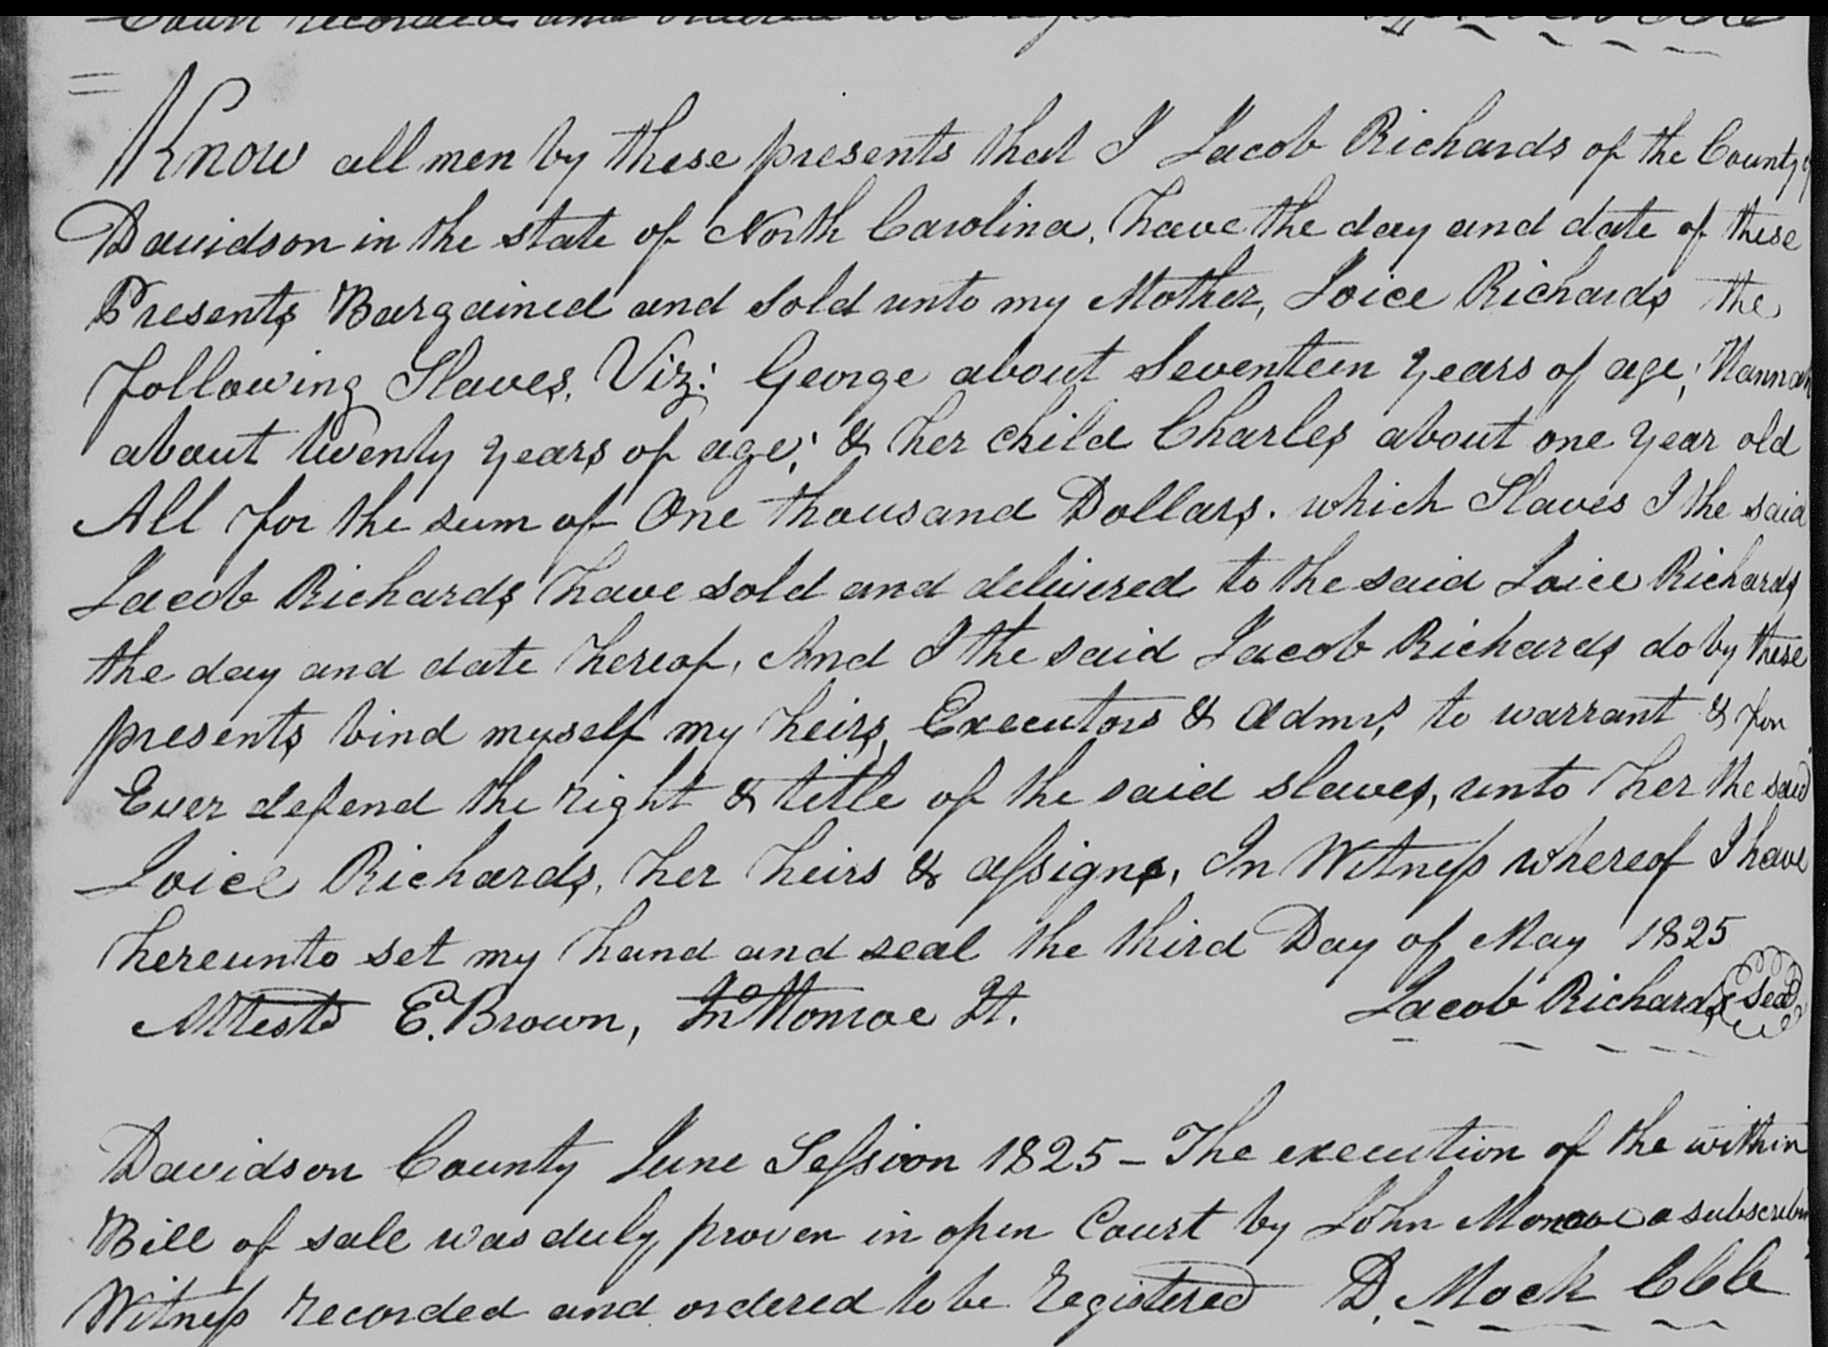 Court recorded and ordered
Know all men by these presents that I Jacob Richards of the County of
Davidson in the state of North Carolina, have the day and date of these
Presents Bargained and Sold unto my Mother, Joice Richards the
following Slaves, Viz: George about Seventeen years of age; Hannah
about twenty years of age; & her child Charles about one year old
All for the sum of One thousand Dollars. which Slaves I the said
Jacob Richards have sold and delivered to the said Joice Richards
the day and date hereof, And I the said Jacob Richards do by these
presents bind myself my heirs, Executors & Admrs, to warrant & for
Ever defend the right & title of the said slaves, unto her the said
Joice Richards, her heirs & assigns, In Witness whereof I have
hereunto set my hand and seal the third Day of May 1825
Attestd E. Brown, Jno Monroe Jt. Jacob Richards Seal
Davidson County June Session 1825 – The execution of the within
Bill of sale was duly proven in open Court by John Monroe a subscribing
Witness recorded and ordered to be Registered D. Mock CClk